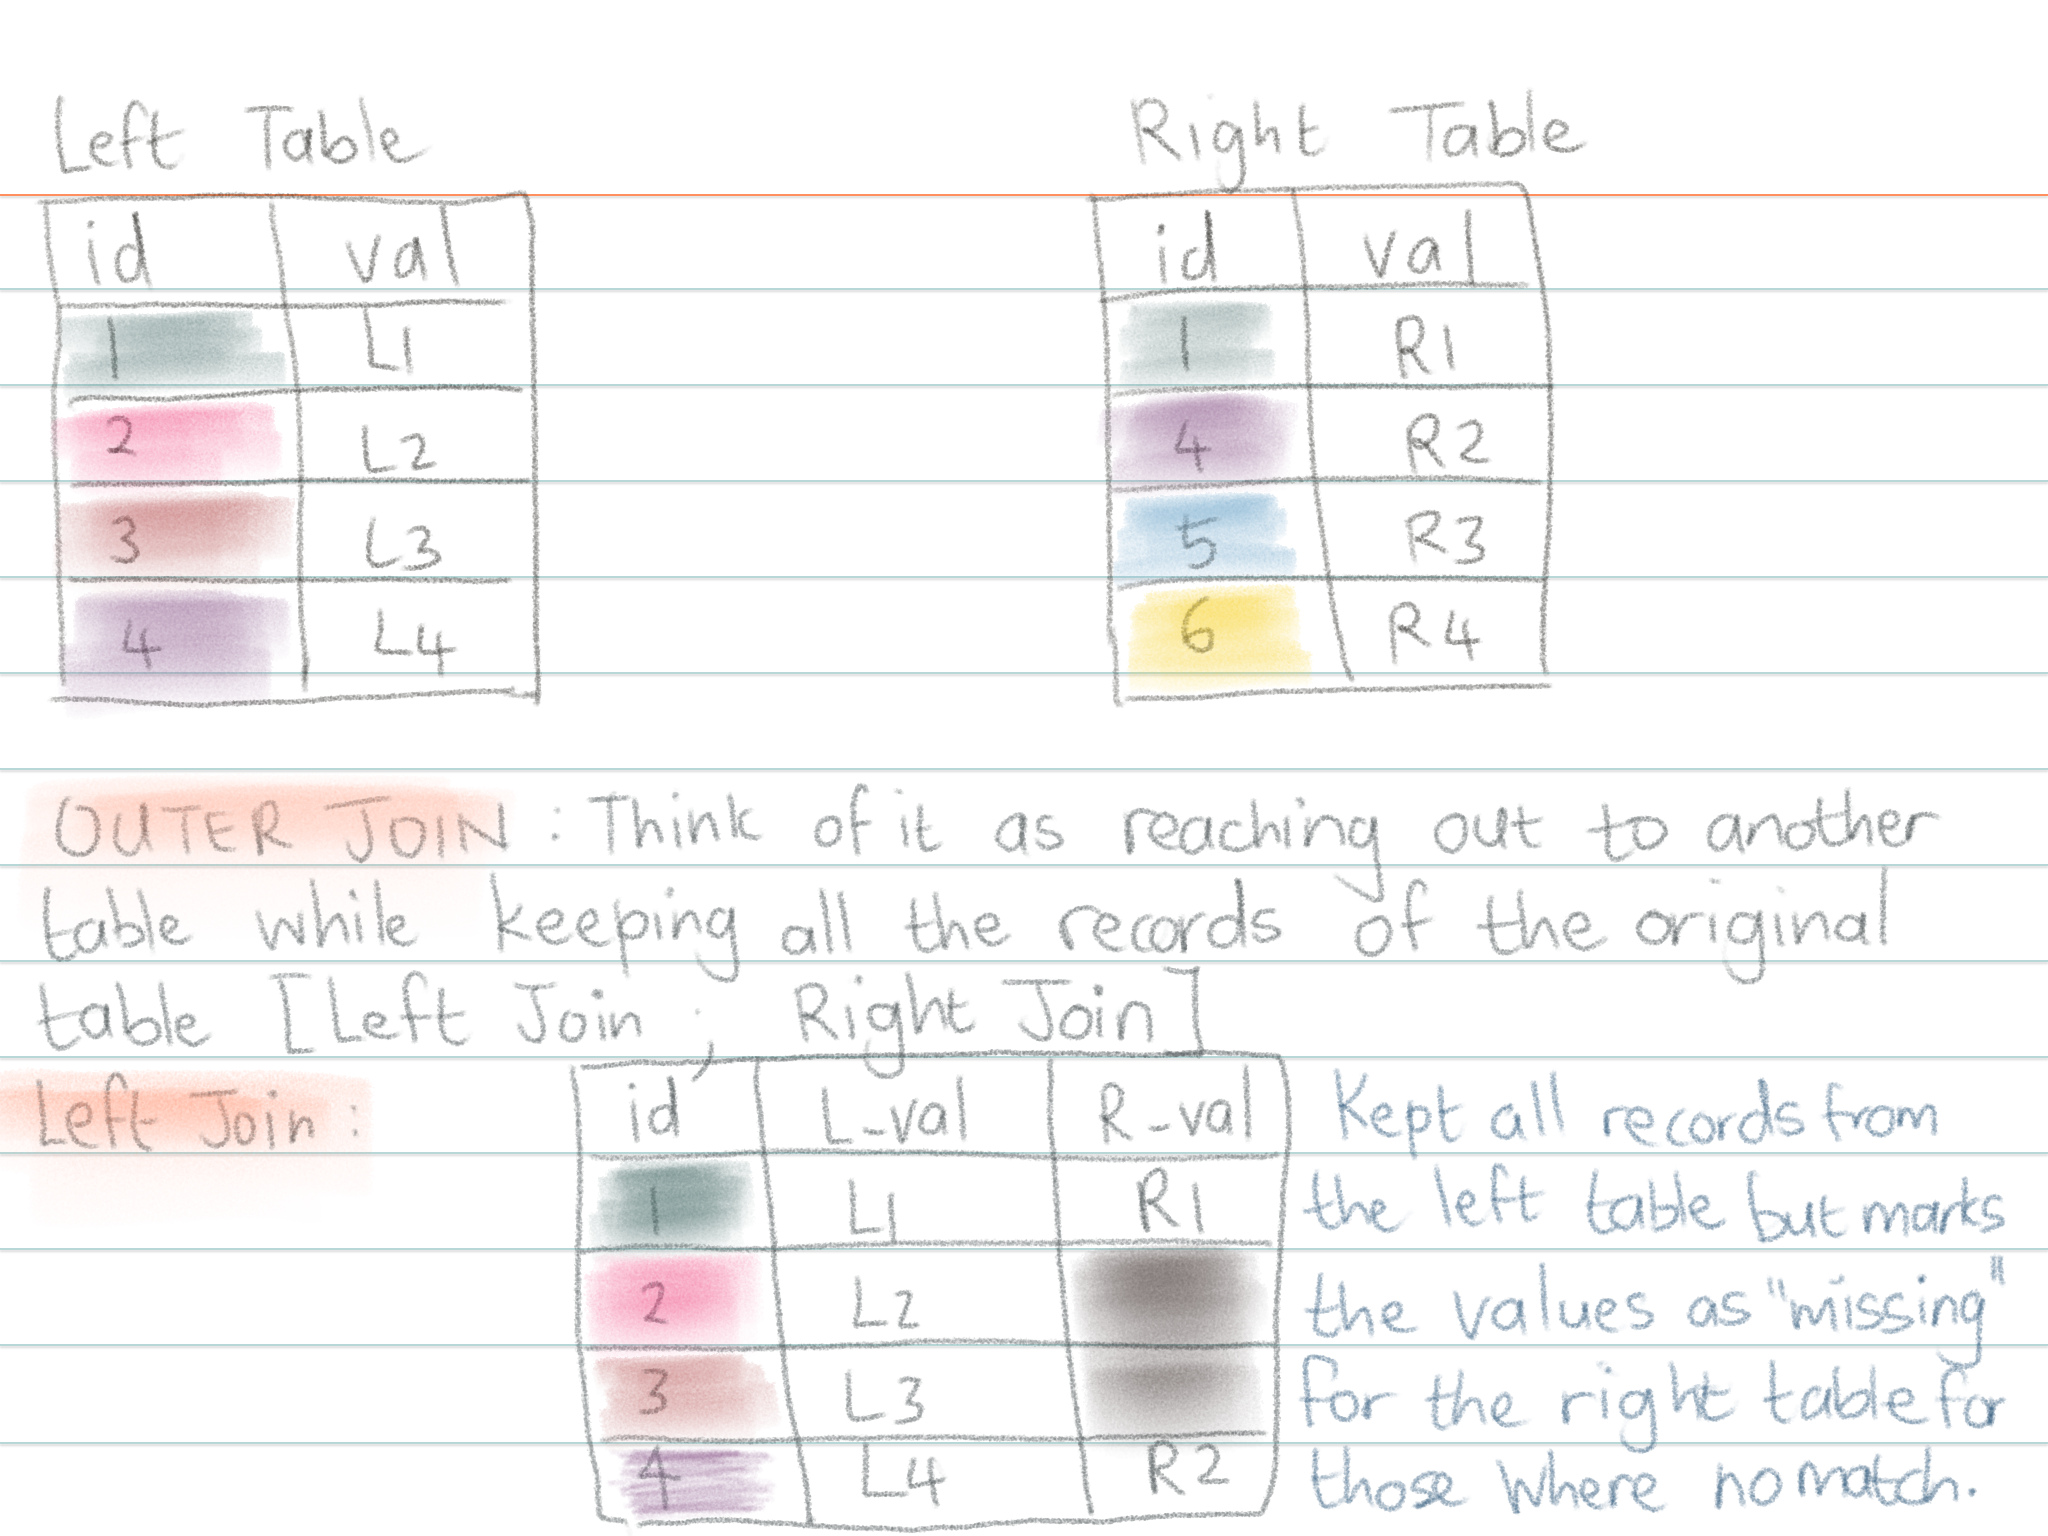 Left Table
id val
1 L1
2 L2
3 L3
4 L4
Right Table
id val
1 R1
4 R2
5 R3
6 R4
OUTER JOIN : Think of it as reaching out to another
table while keeping all the records of the original
table [Left Join ; Right Join]
Left Join :
id L_val R_val
1 L1 R1
2 L2
3 L3
4 L4 R2
Kept all records from
the left table but marks
the values as "missing"
for the right table for
those where no match.